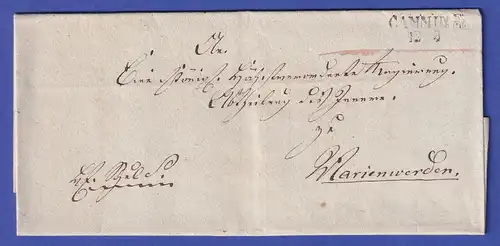 CAMMIN
12 3
An
Eine Königl. Hochverordnete Regierung,
Abtheilung des Innern.
zu
Marienwerder.